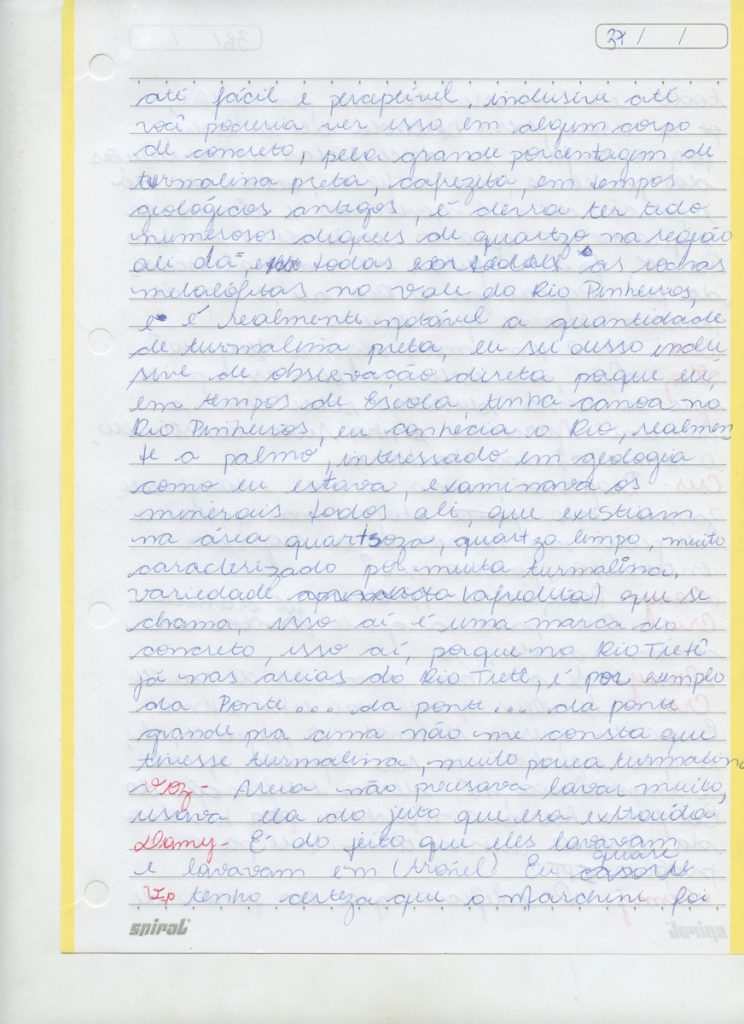 37 / /
até fácil e perceptível, inclusive até
você poderia ver isso em algum corpo
de concreto, pela grande porcentagem de
turmalina preta, cafezita, em tempos
geológicos antigos, é devia ter tido
numerosos diques de quartzo na região
ali da todas as rochas
metalófitas no Vale do Rio Pinheiros,
e é realmente notável a quantidade
de turmalina preta, eu sei disso inclu
sive de observação direta porque eu,
em tempos de Escola, tinha canoa no
Rio Pinheiros, eu conhecia o Rio, realmen
te a palmo, interessado em geologia
como eu estava, examinava os
minerais todos ali, que existiam
na área quartsoza, quartzo limpo, muito
caracterizado por muita turmalina,
variedade (afredita) que se
chama, isso aí é uma marca do
concreto, isso aí, porque no Rio Tietê
já nas areias do Rio Tietê, é por exemplo
da Ponte... da ponte... da ponte
grande pra cima não me consta que
tivesse turmalina, muito pouca turmalina
Voz- Areia não precisava lavar muito,
usava ela do jeito que era extraída
Damy- É do jeito que eles lavavam
e lavavam em Eu quase
tenho certeza que o Marchini foi
spiral